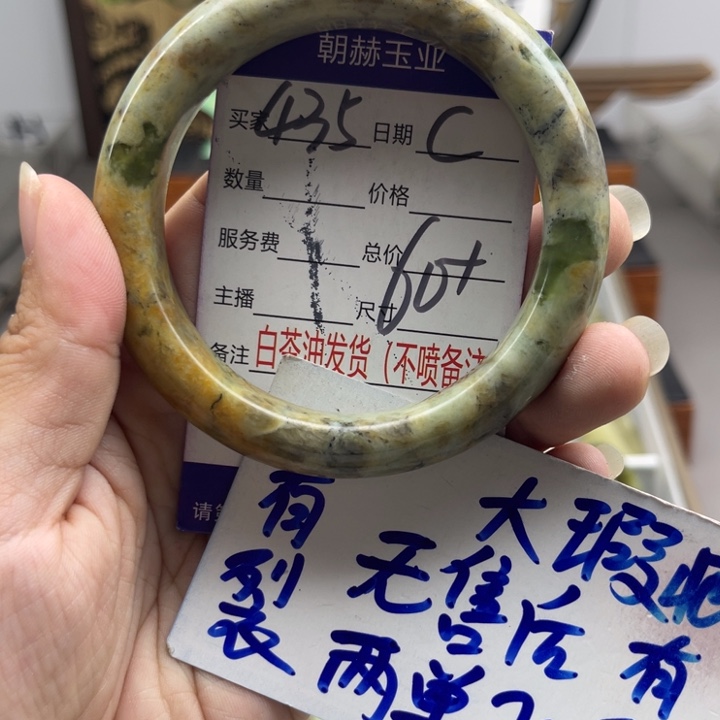 朝赫玉业
买家 435 日期 C
数量 价格
服务费 总价
主播 尺寸 60+
备注 白茶油发货（不喷备注
请
有裂
大瑕疵
无售后
有
两单